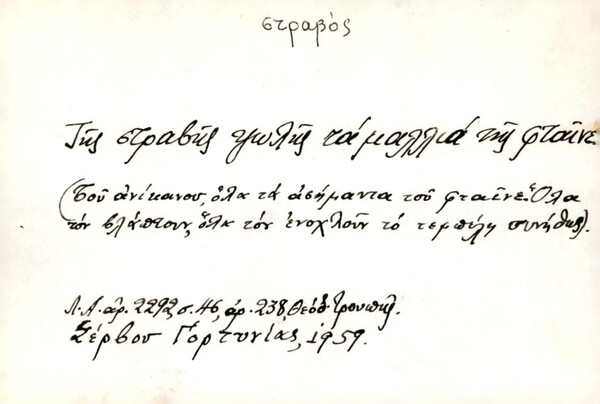 στραβός
Τῆς στραβῆς ψωλῆς τά μαλλιά τῆς φταῖνε
(Τοῦ ἀνίκανου, ὅλα τά ἀσήμαντα τοῦ φταῖνε. Ὅλα
τόν βλάπτουν, ὅλα τόν ἐνοχλοῦν τό τεμπέλη συνήθως).
Λ.Α. ἀρ. 2292, σ. 46, ἀρ. 238, Θεόδ. Τρουπῆς.
Σέρβου Γορτυνίας, 1959.